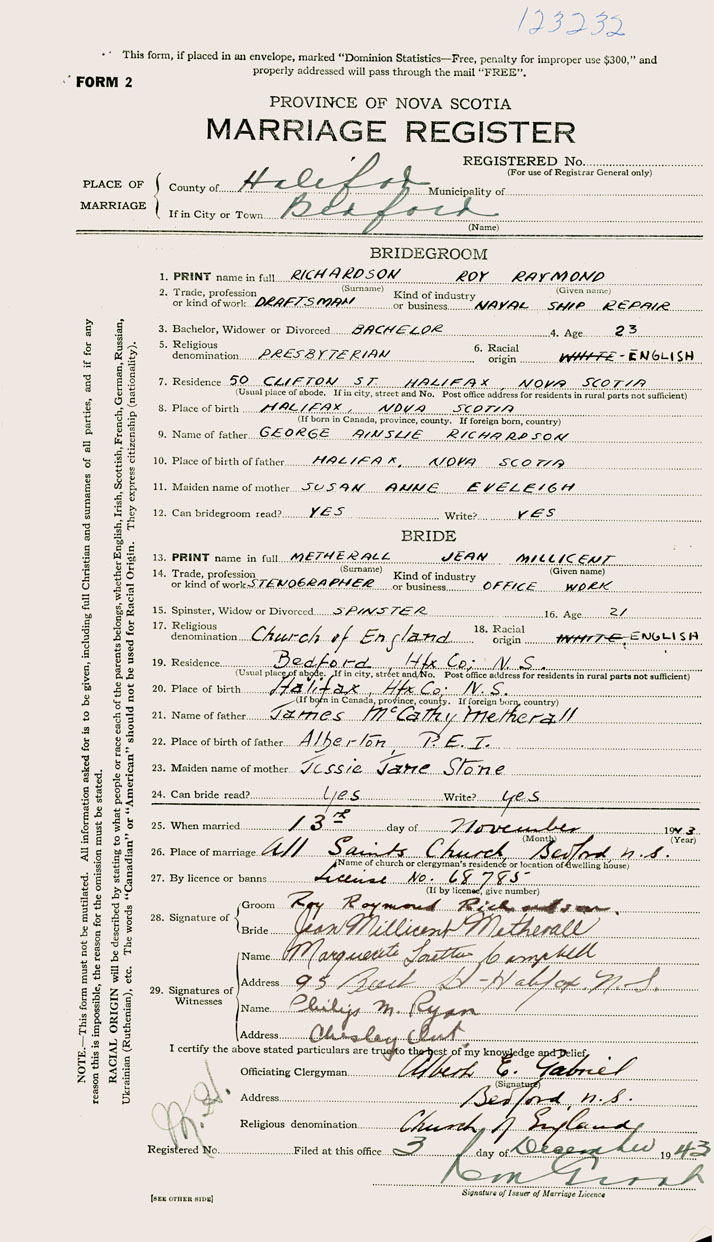 123232
This form, if placed in an envelope, marked "Dominion Statistics—Free, penalty for improper use $300," and
properly addressed will pass through the mail "FREE".
FORM 2
PROVINCE OF NOVA SCOTIA
MARRIAGE REGISTER
REGISTERED No.
(For use of Registrar General only)
PLACE OF MARRIAGE
County of Halifax Municipality of
If in City or Town Bedford
(Name)
BRIDEGROOM
1. PRINT name in full RICHARDSON ROY RAYMOND
(Surname) (Given name)
2. Trade, profession or kind of work DRAFTSMAN Kind of industry or business NAVAL SHIP REPAIR
3. Bachelor, Widower or Divorced BACHELOR 4. Age 23
5. Religious denomination PRESBYTERIAN 6. Racial origin WHITE - ENGLISH
7. Residence 50 CLIFTON ST. HALIFAX, NOVA SCOTIA
(Usual place of abode. If in city, street and No. Post office address for residents in rural parts not sufficient)
8. Place of birth HALIFAX, NOVA SCOTIA
(If born in Canada, province, county. If foreign born, country)
9. Name of father GEORGE AINSLIE RICHARDSON
10. Place of birth of father HALIFAX, NOVA SCOTIA
11. Maiden name of mother SUSAN ANNE EVELEIGH
12. Can bridegroom read? YES Write? YES
BRIDE
13. PRINT name in full METHERALL JEAN MILLICENT
(Surname) (Given name)
14. Trade, profession or kind of work STENOGRAPHER Kind of industry or business OFFICE WORK
15. Spinster, Widow or Divorced SPINSTER 16. Age 21
17. Religious denomination Church of England 18. Racial origin WHITE, ENGLISH
19. Residence Bedford, Hfx Co; N.S.
(Usual place of abode. If in city, street and No. Post office address for residents in rural parts not sufficient)
20. Place of birth Halifax, Hfx Co; N.S.
(If born in Canada, province, county. If foreign born, country)
21. Name of father James McCathy Metherall
22. Place of birth of father Alberton, P.E.I.
23. Maiden name of mother Jessie Jane Stone
24. Can bride read? yes Write? yes
25. When married 13th day of November 1943
(Month) (Year)
26. Place of marriage All Saints Church, Bedford, N.S.
(Name of church or clergyman's residence or location of dwelling house)
27. By licence or banns License No. 68785
(If by licence, give number)
28. Signature of
Groom Roy Raymond Richardson.
Bride Jean Millicent Metherall
29. Signatures of Witnesses
Name Marguerite Loretta Campbell
Address 95 St - Halifax. N.S.
Name Philip M. Ryan
Address Chesley Ont.
I certify the above stated particulars are true to the best of my knowledge and belief.
Officiating Clergyman Albert E. Gabriel
(Signature)
Address Bedford, N.S.
Religious denomination Church of England
Registered No. Filed at this office 3 day of December 1943
Signature of Issuer of Marriage Licence
[SEE OTHER SIDE]
NOTE.—This form must not be mutilated. All information asked for is to be given, including full Christian and surnames of all parties, and if for any
reason this is impossible, the reason for the omission must be stated.
RACIAL ORIGIN will be described by stating to what people or race each of the parents belongs, whether English, Irish, Scottish, French, German, Russian,
Ukrainian (Ruthenian), etc. The words "Canadian" or "American" should not be used for Racial Origin. They express citizenship (nationality).